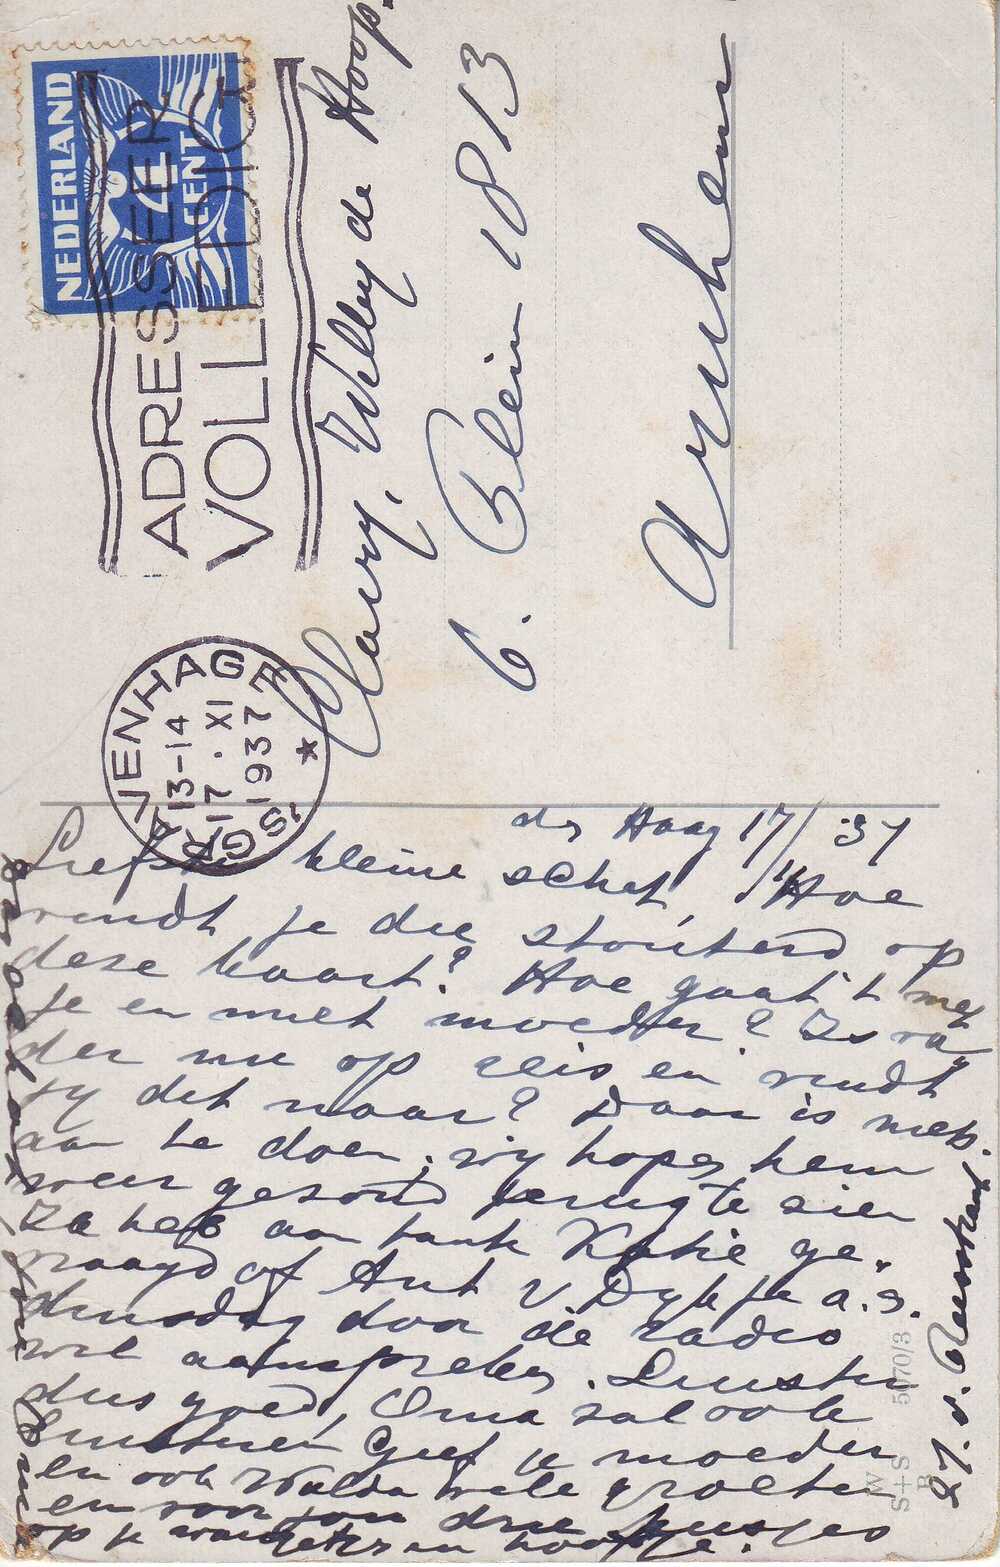 NEDERLAND
4
CENT
ADRESSEER
VOLLEDIG
'S GRAVENHAGE
13-14
17.XI
1937
Willy de Hoop.
6. Plein 1813
Arnhem
den Haag 17/11 '37
Liefste kleine schat, Hoe
vindt je die stouterd op
deze kaart? Hoe gaat 't met
je en met moeder? Is va
der nu op reis en vindt
zy dit naar? Daar is niets
aan te doen, wy hopen hem
weer gezond terug te zien
Ik heb aan tante ge-
vraagd of Ant v. Dyk je a.s.
dinsdag door de radio
wil aanspreken. Luister
dus goed, Oma zal ook
luisteren Geef je moeder
en ook vele groeten
en voor jou drie kusjes
op je wangetjes en hoofdje.
Oma
27. v.
W
S+S 5070/3
B